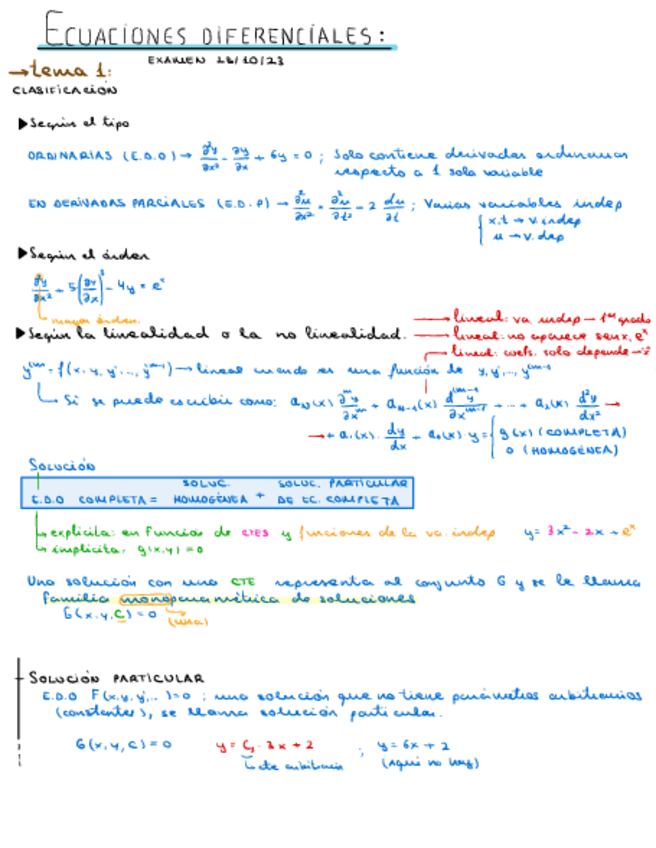 ECUACIONES DIFERENCIALES:
EXAMEN 18/10/23
→tema 1:
CLASIFICACIÓN
▶Según el tipo
ORDINARIAS (E.D.O) → ∂²y/∂x² - ∂y/∂x + 6y = 0 ; Solo contiene derivadas ordinarias
respecto a 1 sola variable
EN DERIVADAS PARCIALES (E.D.P) → ∂²u/∂x² = ∂²u/∂t² - 2 du/∂t ; Varias variables indep
x,t → v.indep
u → v.dep
▶Según el órden
∂²y/∂x² + 5(∂y/∂x)³ - 4y = eˣ
mayor órden
lineal: va indep → 1er grado
▶Según la linealidad o la no linealidad.
lineal: no aparece senx, eˣ
lineal: coefs. solo depende
y⁽ᵐ⁾ = f(x, y, y', ..., y⁽ᵐ⁻¹⁾) → lineal cuando es una función de y, y', ..., y⁽ᵐ⁻¹⁾
Si se puede escribir como:
→ + a₁(x) · dy/dx + a₀(x) y = g(x) (COMPLETA)
0 (HOMOGÉNEA)
SOLUCIÓN
E.D.O COMPLETA = SOLUC. HOMOGÉNEA + SOLUC. PARTICULAR DE EC. COMPLETA
explícita: en función de CTES y funciones de la va. indep y = 3x² - 2x + eˣ
implícita. g(x,y) = 0
Una solución con una CTE representa al conjunto G y se le llama
familia monoparamétrica de soluciones
G(x,y,C) = 0
(una)
SOLUCIÓN PARTICULAR
E.D.O F(x,y,y',..) = 0 ; una solución que no tiene parámetros arbitrarios
(constantes), se llama solución particular.
G(x,y,C) = 0 y = C₁ · 3x + 2 ; y = 6x + 2
cte arbitraria (Aquí no hay)